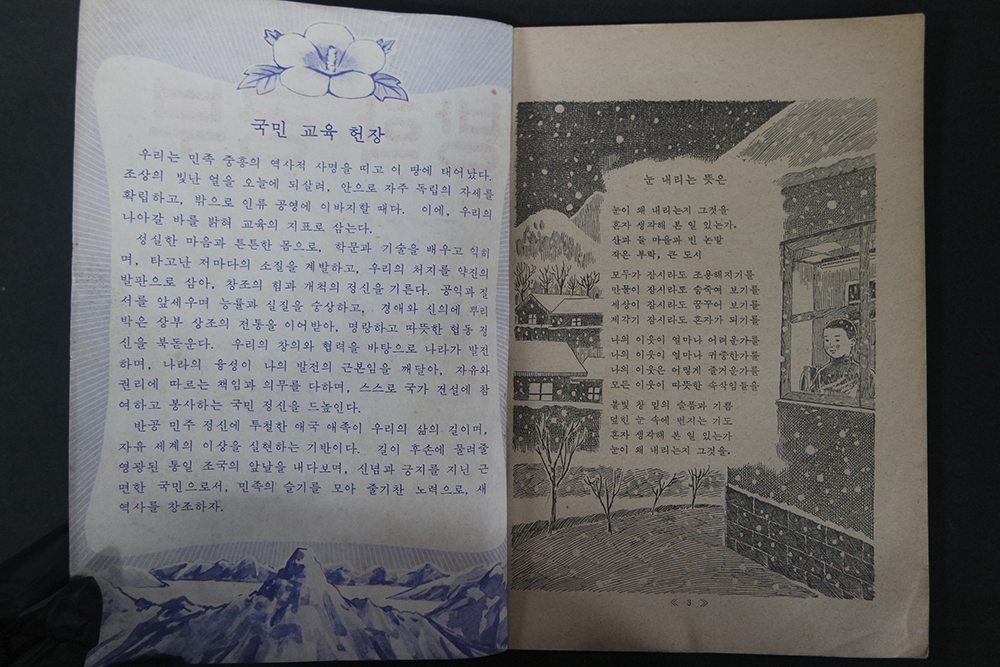 국민 교육 헌장
우리는 민족 중흥의 역사적 사명을 띠고 이 땅에 태어났다.
조상의 빛난 얼을 오늘에 되살려, 안으로 자주 독립의 자세를
확립하고, 밖으로 인류 공영에 이바지할 때다. 이에, 우리의
나아갈 바를 밝혀 교육의 지표로 삼는다.
성실한 마음과 튼튼한 몸으로, 학문과 기술을 배우고 익히
며, 타고난 저마다의 소질을 계발하고, 우리의 처지를 약진의
발판으로 삼아, 창조의 힘과 개척의 정신을 기른다. 공익과 질
서를 앞세우며 능률과 실질을 숭상하고, 경애와 신의에 뿌리
박은 상부 상조의 전통을 이어받아, 명랑하고 따뜻한 협동 정
신을 북돋운다. 우리의 창의와 협력을 바탕으로 나라가 발전
하며, 나라의 융성이 나의 발전의 근본임을 깨달아, 자유와
권리에 따르는 책임과 의무를 다하며, 스스로 국가 건설에 참
여하고 봉사하는 국민 정신을 드높인다.
반공 민주 정신에 투철한 애국 애족이 우리의 삶의 길이며,
자유 세계의 이상을 실현하는 기반이다. 길이 후손에 물려줄
영광된 통일 조국의 앞날을 내다보며, 신념과 긍지를 지닌 근
면한 국민으로서, 민족의 슬기를 모아 줄기찬 노력으로, 새
역사를 창조하자.
눈 내리는 뜻은
눈이 왜 내리는지 그것을
혼자 생각해 본 일 있는가,
산과 들 마을과 빈 논밭
작은 부락, 큰 도시
모두가 잠시라도 조용해지기를
만물이 잠시라도 숨죽여 보기를
세상이 잠시라도 꿈꾸어 보기를
제각기 잠시라도 혼자가 되기를
나의 이웃이 얼마나 어려운가를
나의 이웃이 얼마나 귀중한가를
나의 이웃은 어떻게 즐거운가를
모든 이웃이 따뜻한 속삭임들을
불빛 창 밑의 슬픔과 기쁨
덮인 눈 속에 번지는 기도
혼자 생각해 본 일 있는가
눈이 왜 내리는지 그것을,
≪ 3 ≫